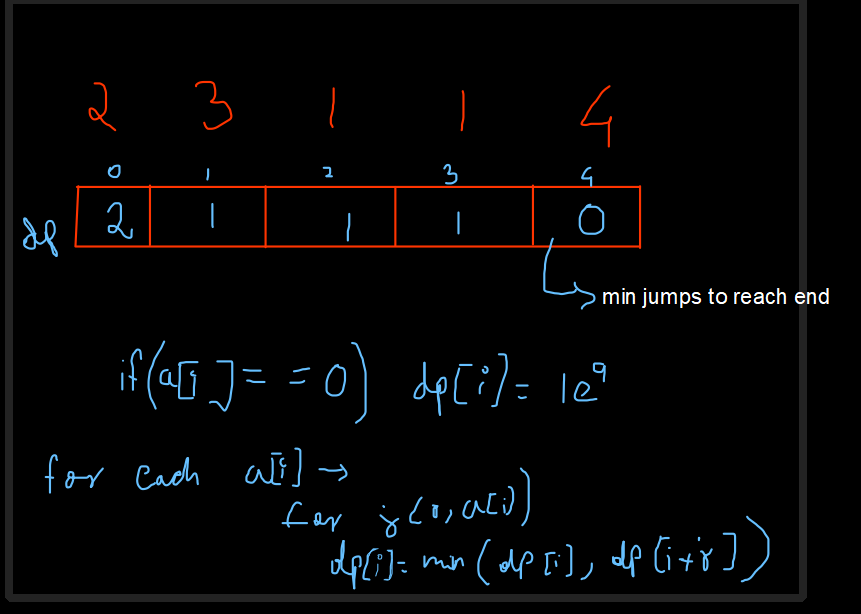 2 3 1 1 4
0 1 2 3 4
dp 2 1 1 1 0
min jumps to reach end
if(a[i]==0) dp[i]=1e9
for each a[i]→
for j(0,a[i])
dp[i]=min(dp[i],dp[i+j])